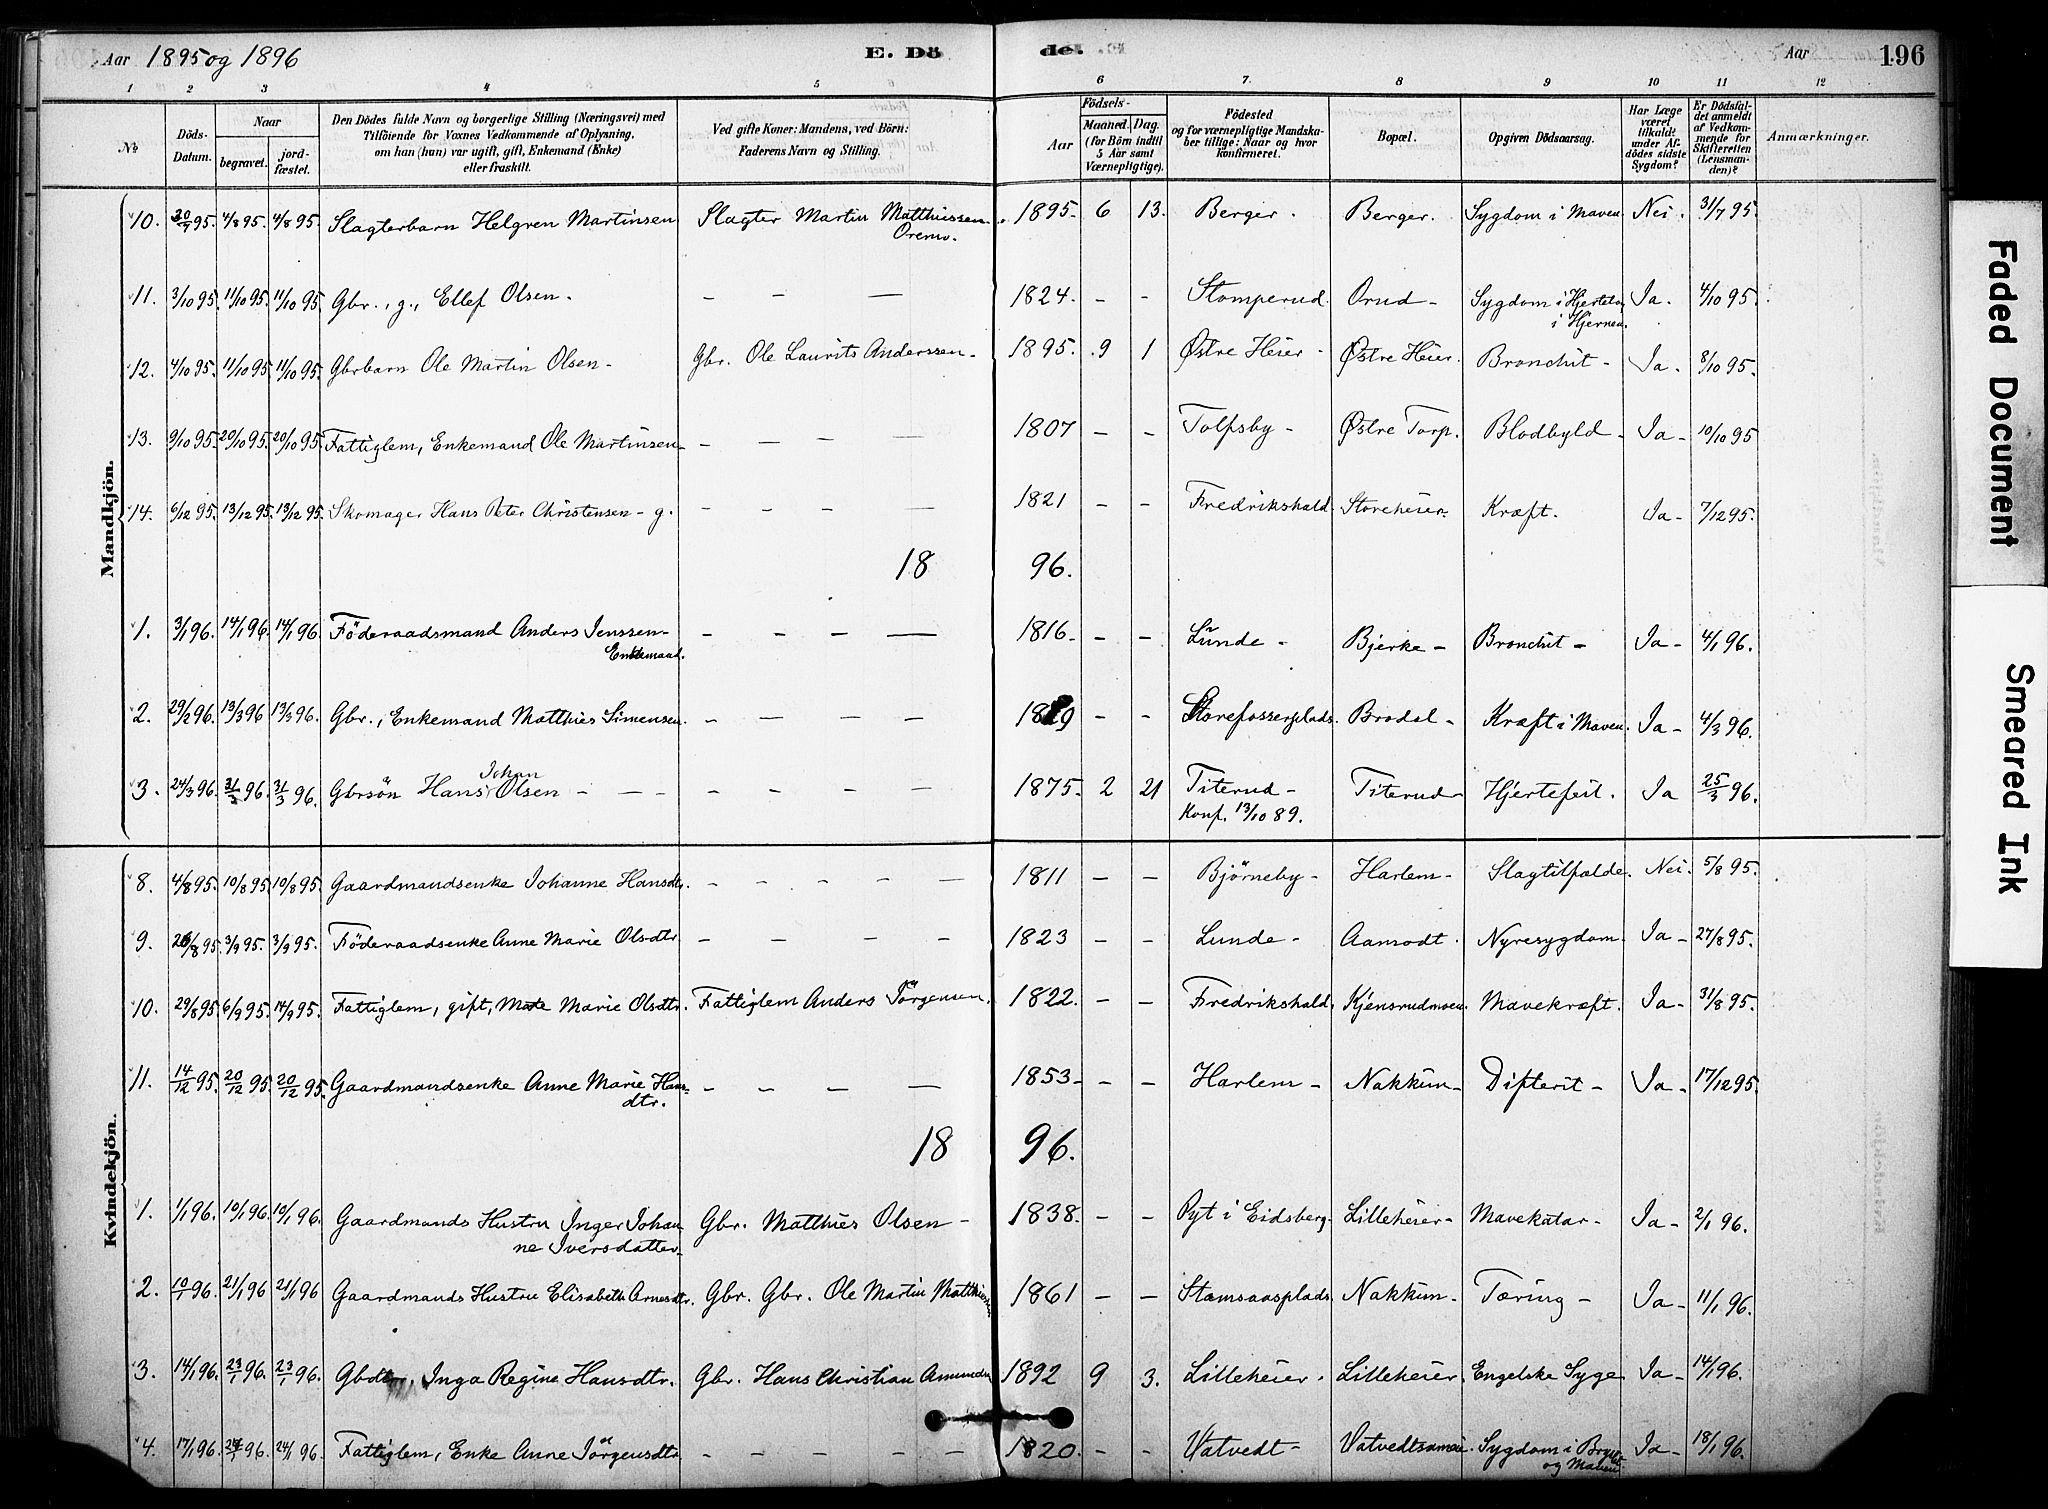 Aar 1895 og 1896 E. Dö de. Aar 196
1 2 3 4 5 6 7. 8 9 10 11 12
No Döds-Datum. Naar begravet. jordfæstet. Den Dödes fulde Navn og borgerlige Stilling (Næringsvei) med Tilföiende for Voxnes Vedkommende af Oplysning, om han (hun) var ugift, gift, Enkemand (Enke) eller fraskilt. Ved gifte Koner: Mandens, ved Börn: Faderens Navn og Stilling. Födsels- Aar Maaned. Dag. (for Börn indtil 5 Aar samt Værnepligtige). Födested og for værnepligtige Mandskaber tillige: Naar og hvor konfirmeret. Bopæl. Opgiven Dödsaarsag. Har Læge været tilkaldt under Afdödes sidste Sygdom? Er Dödsfaldet anmeldt af Vedkommende for Skifteretten (Lensmanden)? Anmærkninger.
Mandkjön.
10. 30/7 95. 4/8 95. 4/8 95. Slagterbarn Helgren Martinsen Slagter Martin Matthiessen Oremo. 1895. 6 13. Berger. Berger. Sygdom i Maven Nei. 31/7 95.
11. 3/10 95. 11/10 95. 11/10 95. Gbr., g., Ellef Olsen. - - - 1824. - - Stomperud. Orud - Sygdom i Hjertet og i Hjernen. Ja. 4/10 95.
12. 4/10 95. 11/10 95. 11/10 95. Gbrbarn Ole Martin Olsen - Gbr. Ole Laurits Anderssen - 1895. 9 1 Østre Heier - Østre Heier. Bronchit - Ja - 8/10 95.
13. 9/10 95. 20/10 95. 20/10 95. Fattiglem, Enkemand Ole Martinsen - - - - - 1807 - - Tolfsby - Østre Torp. Blodbyld - Ja - 10/10 95
14. 6/12 95. 13/12 95. 13/12 95. Skomager Hans Peter Christensen - g. - - - - 1821 - - Fredrikshald. Storeheier. Kræft. Ja - 7/12 95.
18 96.
1. 3/1 96. 14/1 96. 14/1 96. Föderaadsmand Anders Jenssen - Enkemand. - - - - 1816. - - Lunde - Bjerke - Bronchit - Ja - 4/1 96.
2. 29/2 96. 13/3 96 13/3 96. Gbr., Enkemand Matthies Simensen. - - - - - - Storefosserplads. Brodal - Kræft i Maven. Ja - 4/3 96.
3. 24/3 96. 31/3 96. 31/3 96. Gbrsön Hans Johan Olsen - - - - - - - 1875. 2 21 Titerud - Konf. 13/10 89. Titerud - Hjertefeil. Ja 25/3 96.
Kvindekjön.
8. 4/8 95. 10/8 95. 10/8 95. Gaardmandsenke Johanne Hansdtr. - - - - - 1811 - - Bjørneby - Harlem - Slagtilfælde. Nei. 5/8 95.
9. 26/8 95. 3/9 95. 3/9 95. Föderaadsenke Anne Marie Olsdtr - - - - 1823 - - Lunde - Aamodt. Nyresygdom. Ja - 27/8 95.
10. 29/8 95. 6/9 95. 14/9 95. Fattiglem, gift, Marie Olsdtr. Fattiglem Anders Jörgensen. 1822. - - Fredrikshald. Kjensrudmoen. Mavekræft. Ja - 31/8 95.
11. 14/12 95. 20/12 95. 20/12 95. Gaardmandsenke Anne Marie Hansdtr. - - - - 1853 - - - Harlem - Nakkim - Difterit - Ja - 17/12 95.
18 96.
1. 1/1 96. 10/1 96. 10/1 96. Gaardmands Hustru Inger Johanne Iversdatter - Gbr. Matthies Olsen - 1838. - - Pyt i Eidsberg. Lilleheier - Mavekatar - Ja - 2/1 96.
2. 10/1 96. 21/1 96 21/1 96 Gaardmands Hustru Elisabeth Arnesdtr. Gbr. Gbr. Ole Martin Matthiesen 1861 - - Stamsaasplads. Nakkim - Tæring - Ja - 11/1 96.
3. 14/1 96. 23/1 96. 23/1 96. Gbdtr. Inga Regine Hansdtr. Gbr. Hans Christian Amundsen 1892 9 3. Lilleheier. Lilleheier. Engelske Syge Ja - 14/1 96.
4. 17/1 96. 24/1 96. 24/1 96 Fattiglem, Enke Anne Jörgensdtr. - - - - - 1820. - - Vatvedt - Sygdom i Brystet og Maven Ja - 18/1 96.
Faded Document
Smeared Ink